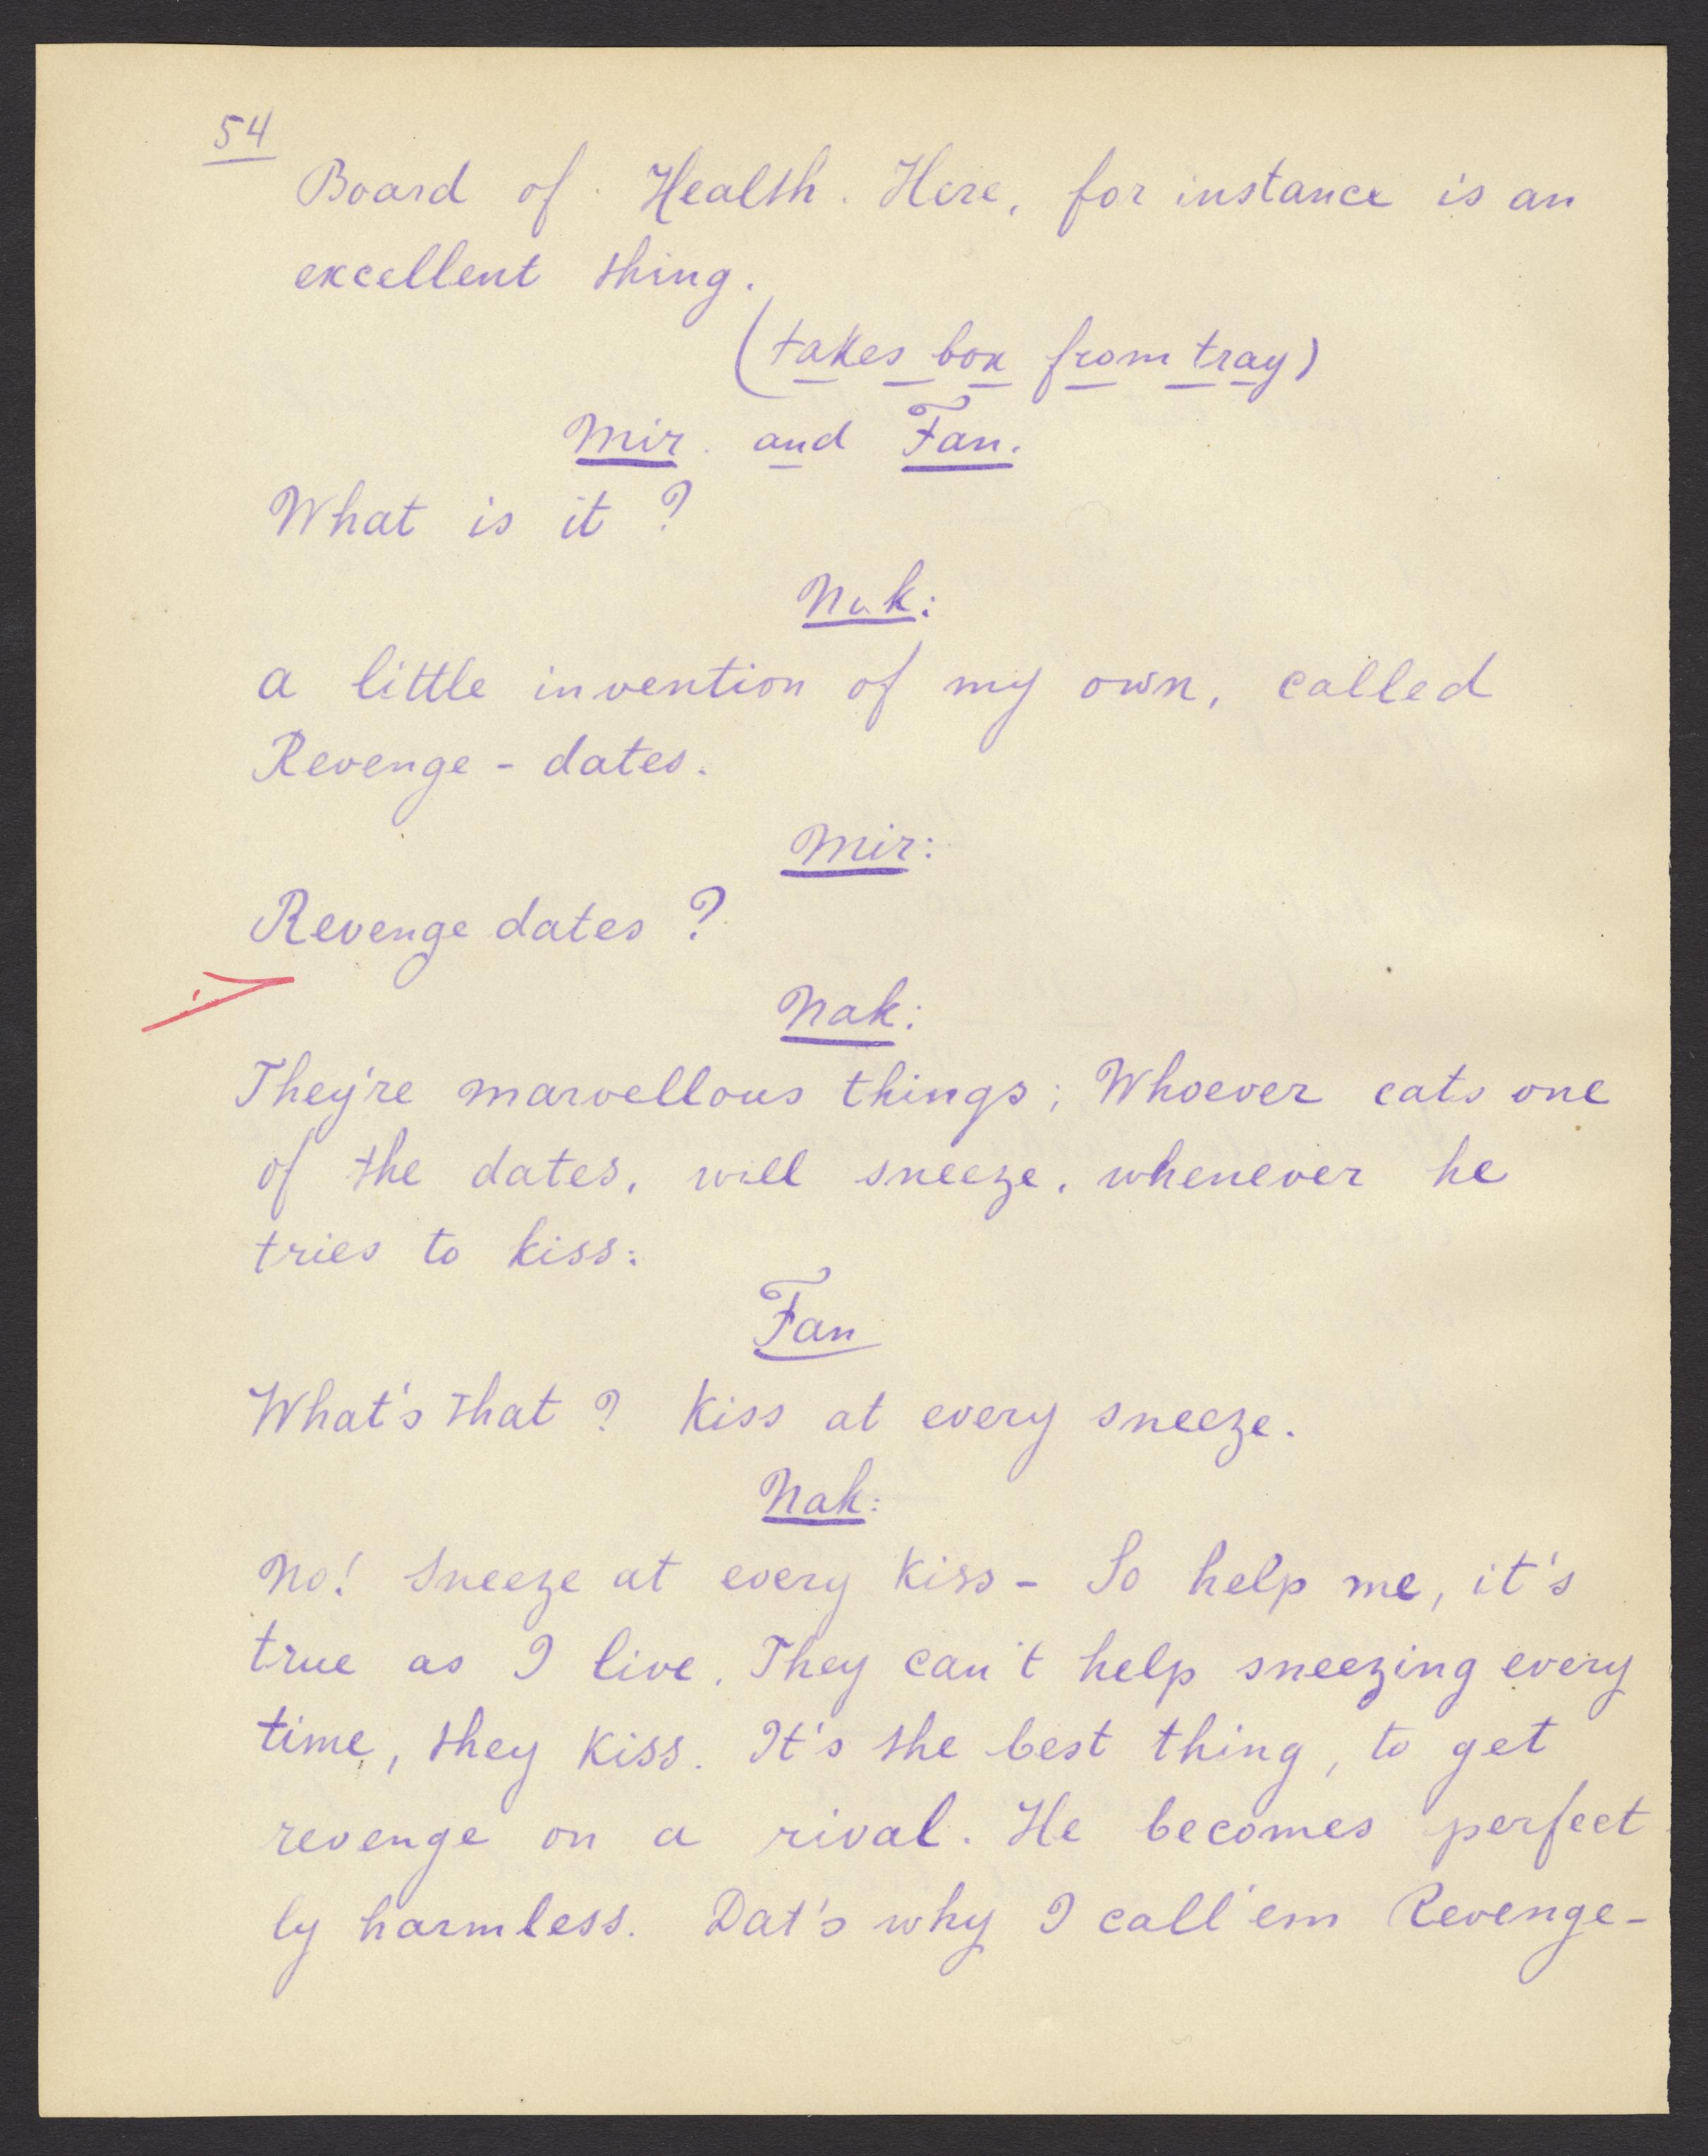 54
Board of Health. Here, for instance is an
excellent thing.
(takes box from tray)
Mir. and Fan.
What is it?
Nak:
a little invention of my own, called
Revenge - dates.
Mir:
Revenge dates?
Nak:
They're marvellous things; Whoever eats one
of the dates, will sneeze, whenever he
tries to kiss.
Fan
What's that? Kiss at every sneeze.
Nak:
No! Sneeze at every kiss - So help me, it's
true as I live. They can't help sneezing every
time, they kiss. It's the best thing, to get
revenge on a rival. He becomes perfect
ly harmless. Dat's why I call'em Revenge-